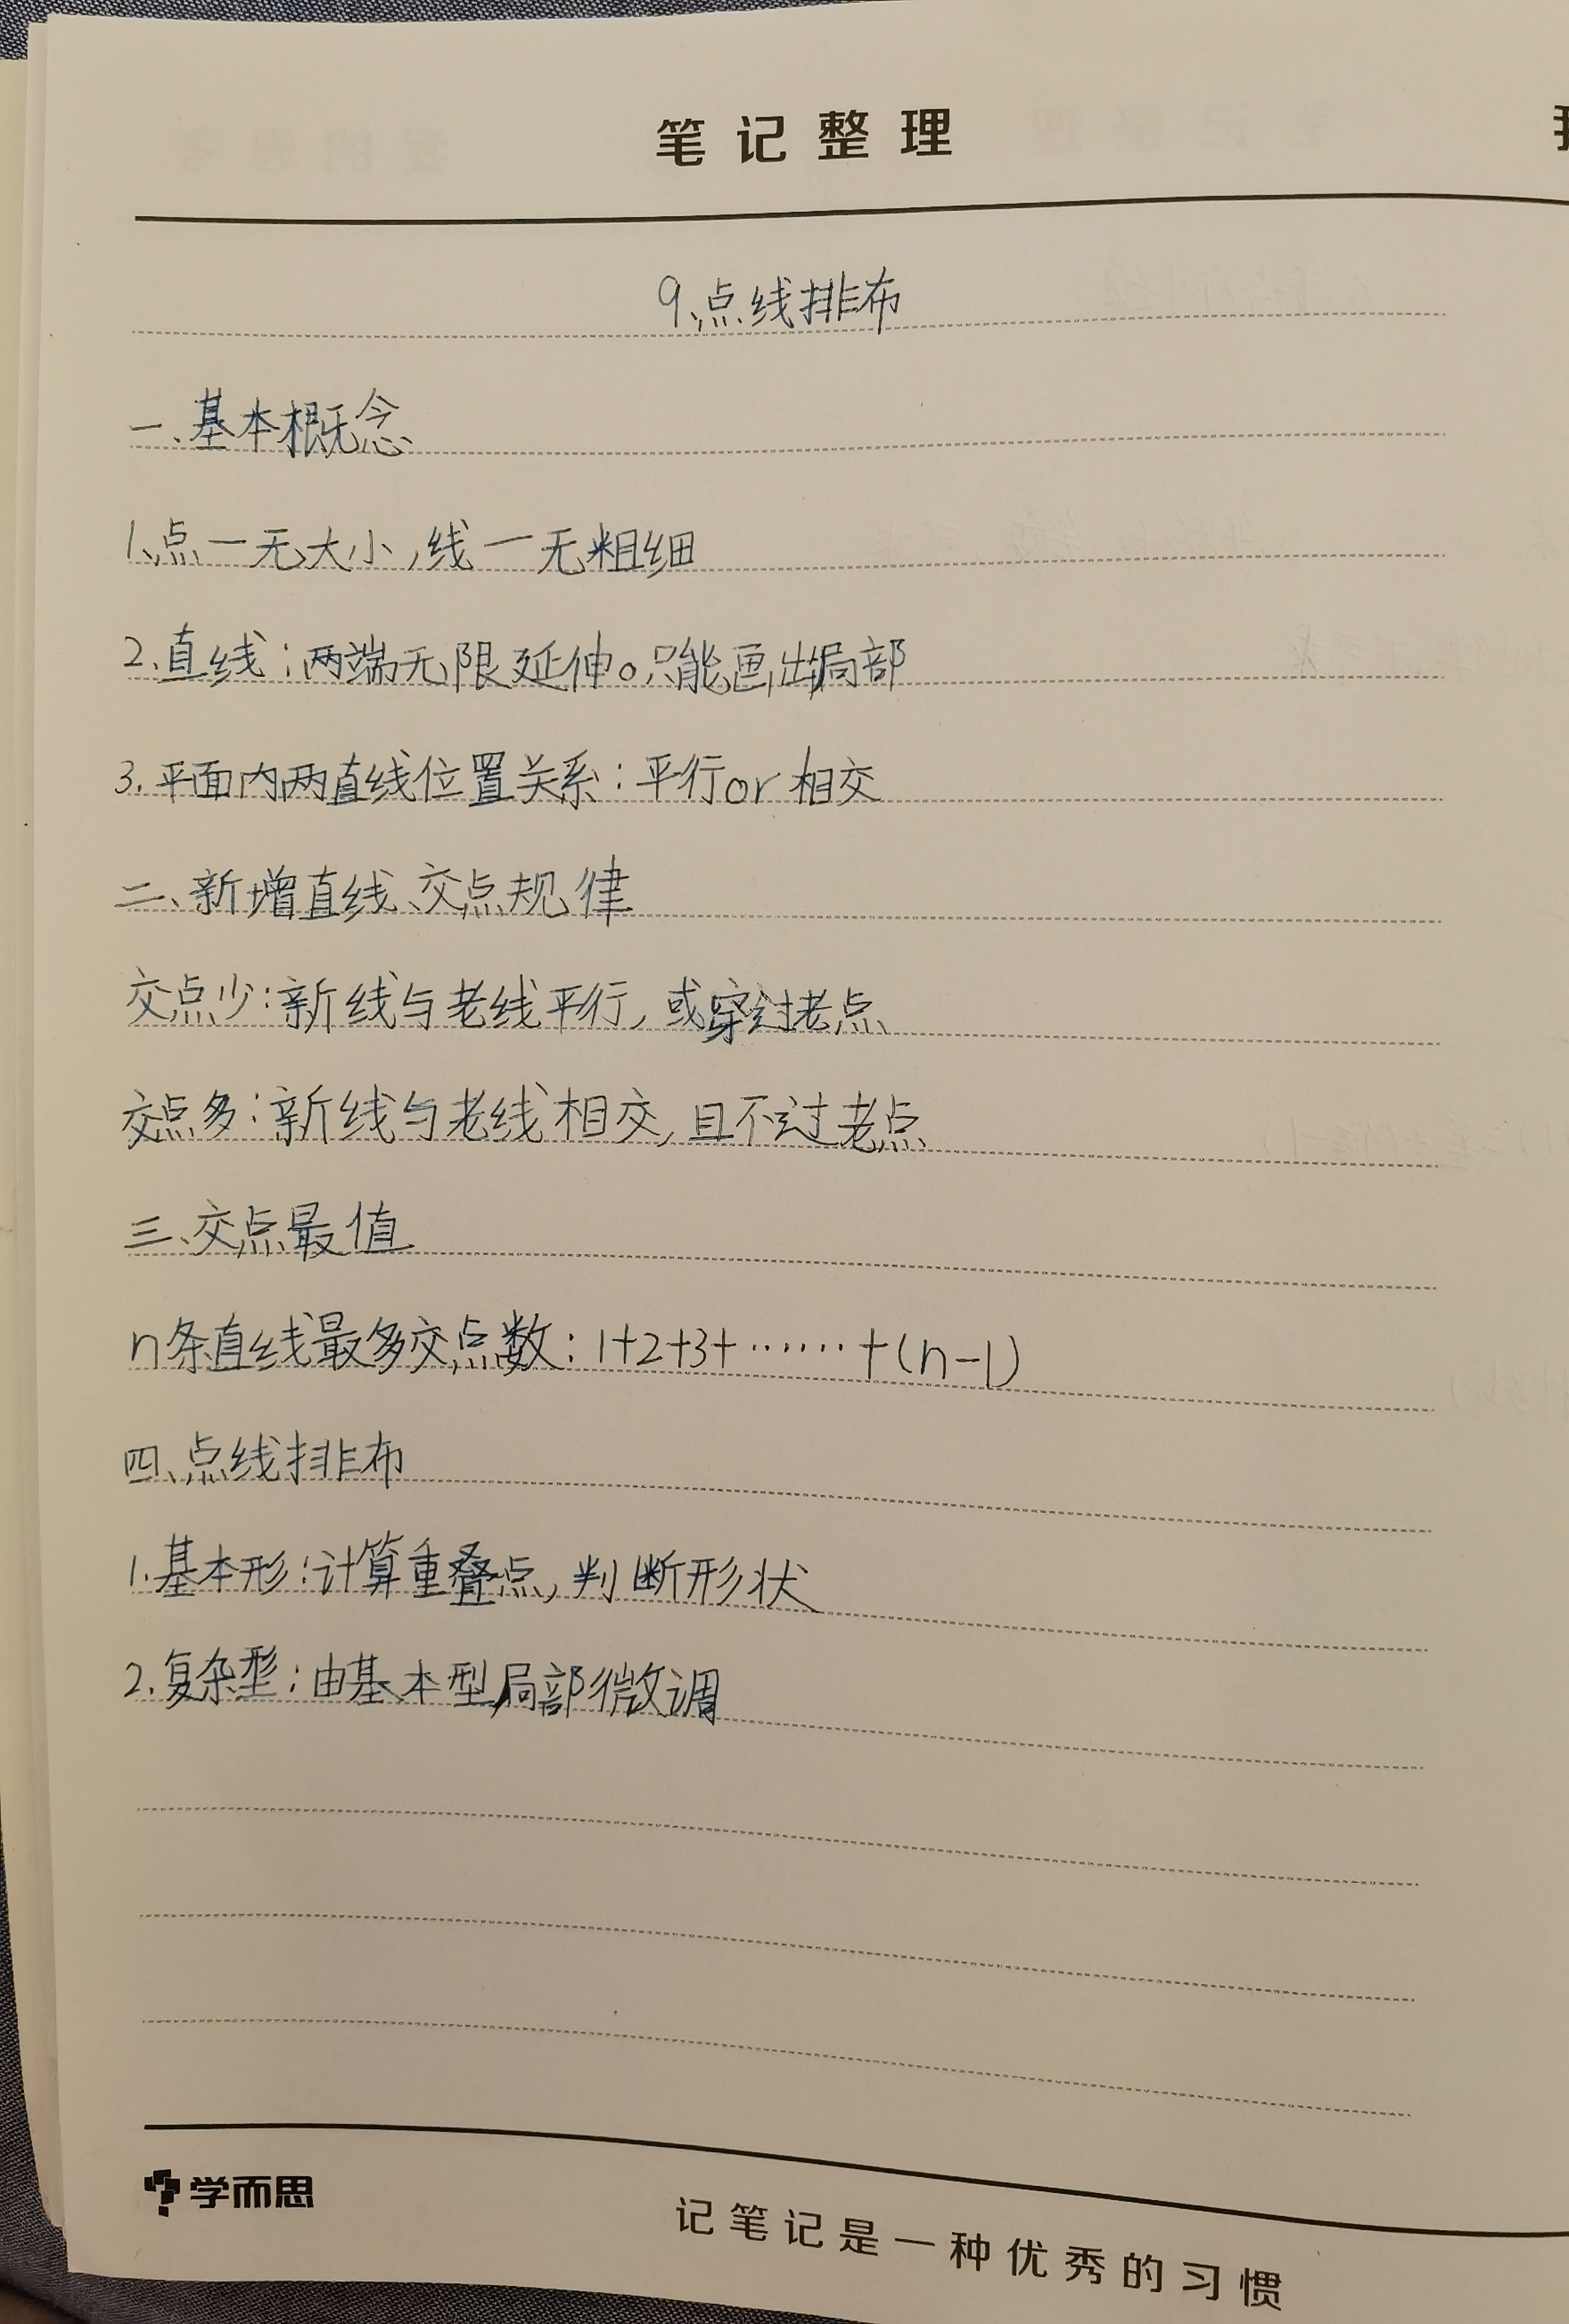 笔记整理
9、点线排布
一、基本概念
1、点—无大小,线—无粗细
2、直线:两端无限延伸。只能画出局部
3、平面内两直线位置关系:平行or相交
二、新增直线、交点规律
交点少:新线与老线平行,或穿过老点
交点多:新线与老线相交,且不过老点
三、交点最值
n条直线最多交点数:1+2+3+……+(n-1)
四、点线排布
1.基本形:计算重叠点,判断形状
2.复杂型:由基本型局部微调
学而思
记笔记是一种优秀的习惯